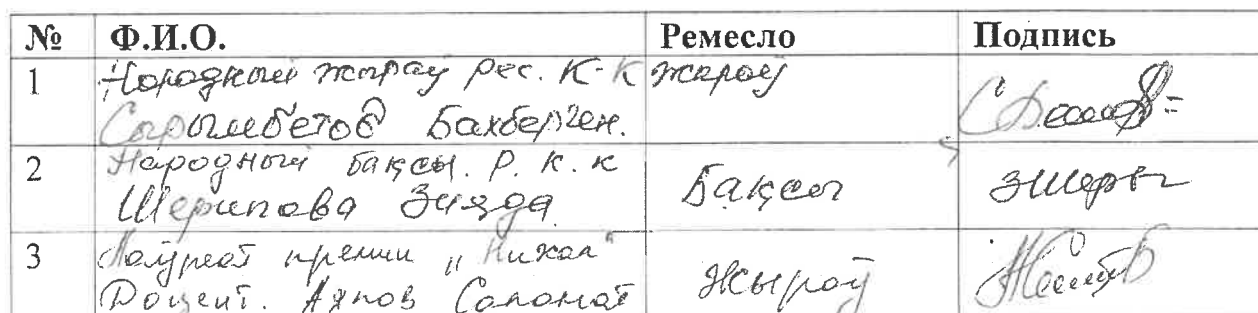 № Ф.И.О. Ремесло Подпись
1 Народный жырау рес. К-К жырау
Сарымбетов Бахберген.
2 Народный бақсы. Р. К. К Бақсы
Шерипова Зияда
3 Лауреат премии „Нихол"
Доцент. Аяпов Саламат Жырау